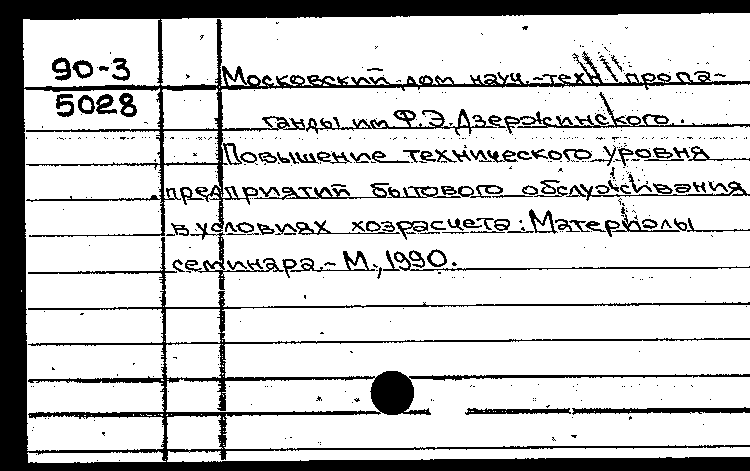 90-3
5028
Московский дом науч.-техн. пропа-
ганды им Ф.Э.Дзержинского.
Повышение технического уровня
предприятий бытового обслуживания
в условиях хозрасчета: Материалы
семинара.- М., 1990.